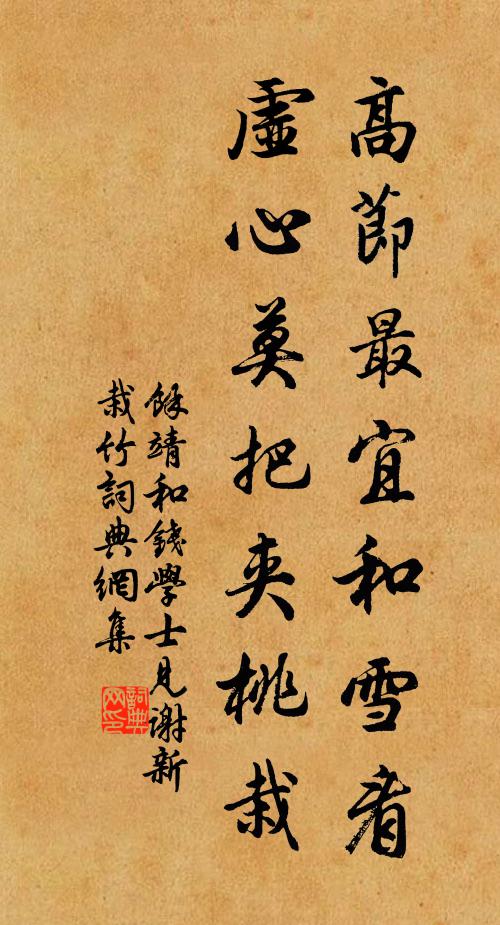 高節最宜和雪看
虛心莫把夾桃栽
餘靖和錢學士見謝新
栽竹詞典網集
詞典
网印